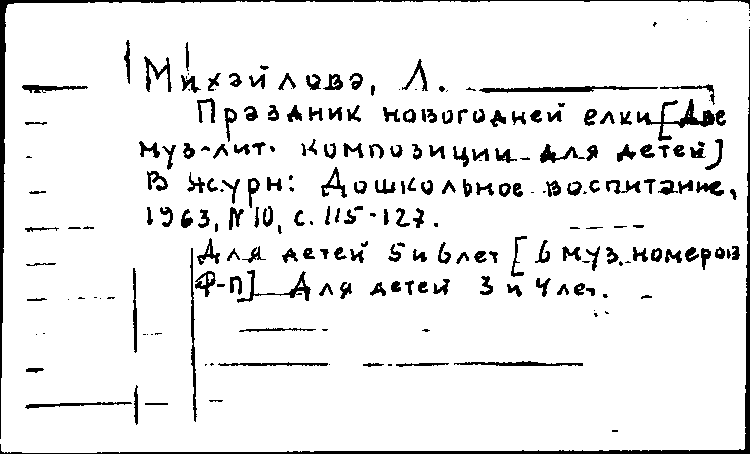 Михайлова, Л.
Праздник новогодней елки [Две
муз-лит. композиции для детей]
В журн: Дошкольное воспитание,
1963, № 10, с. 115-127.
Для детей 5 и 6 лет [6 муз. номеров
Ф-п] Для детей 3 и 4 лет.